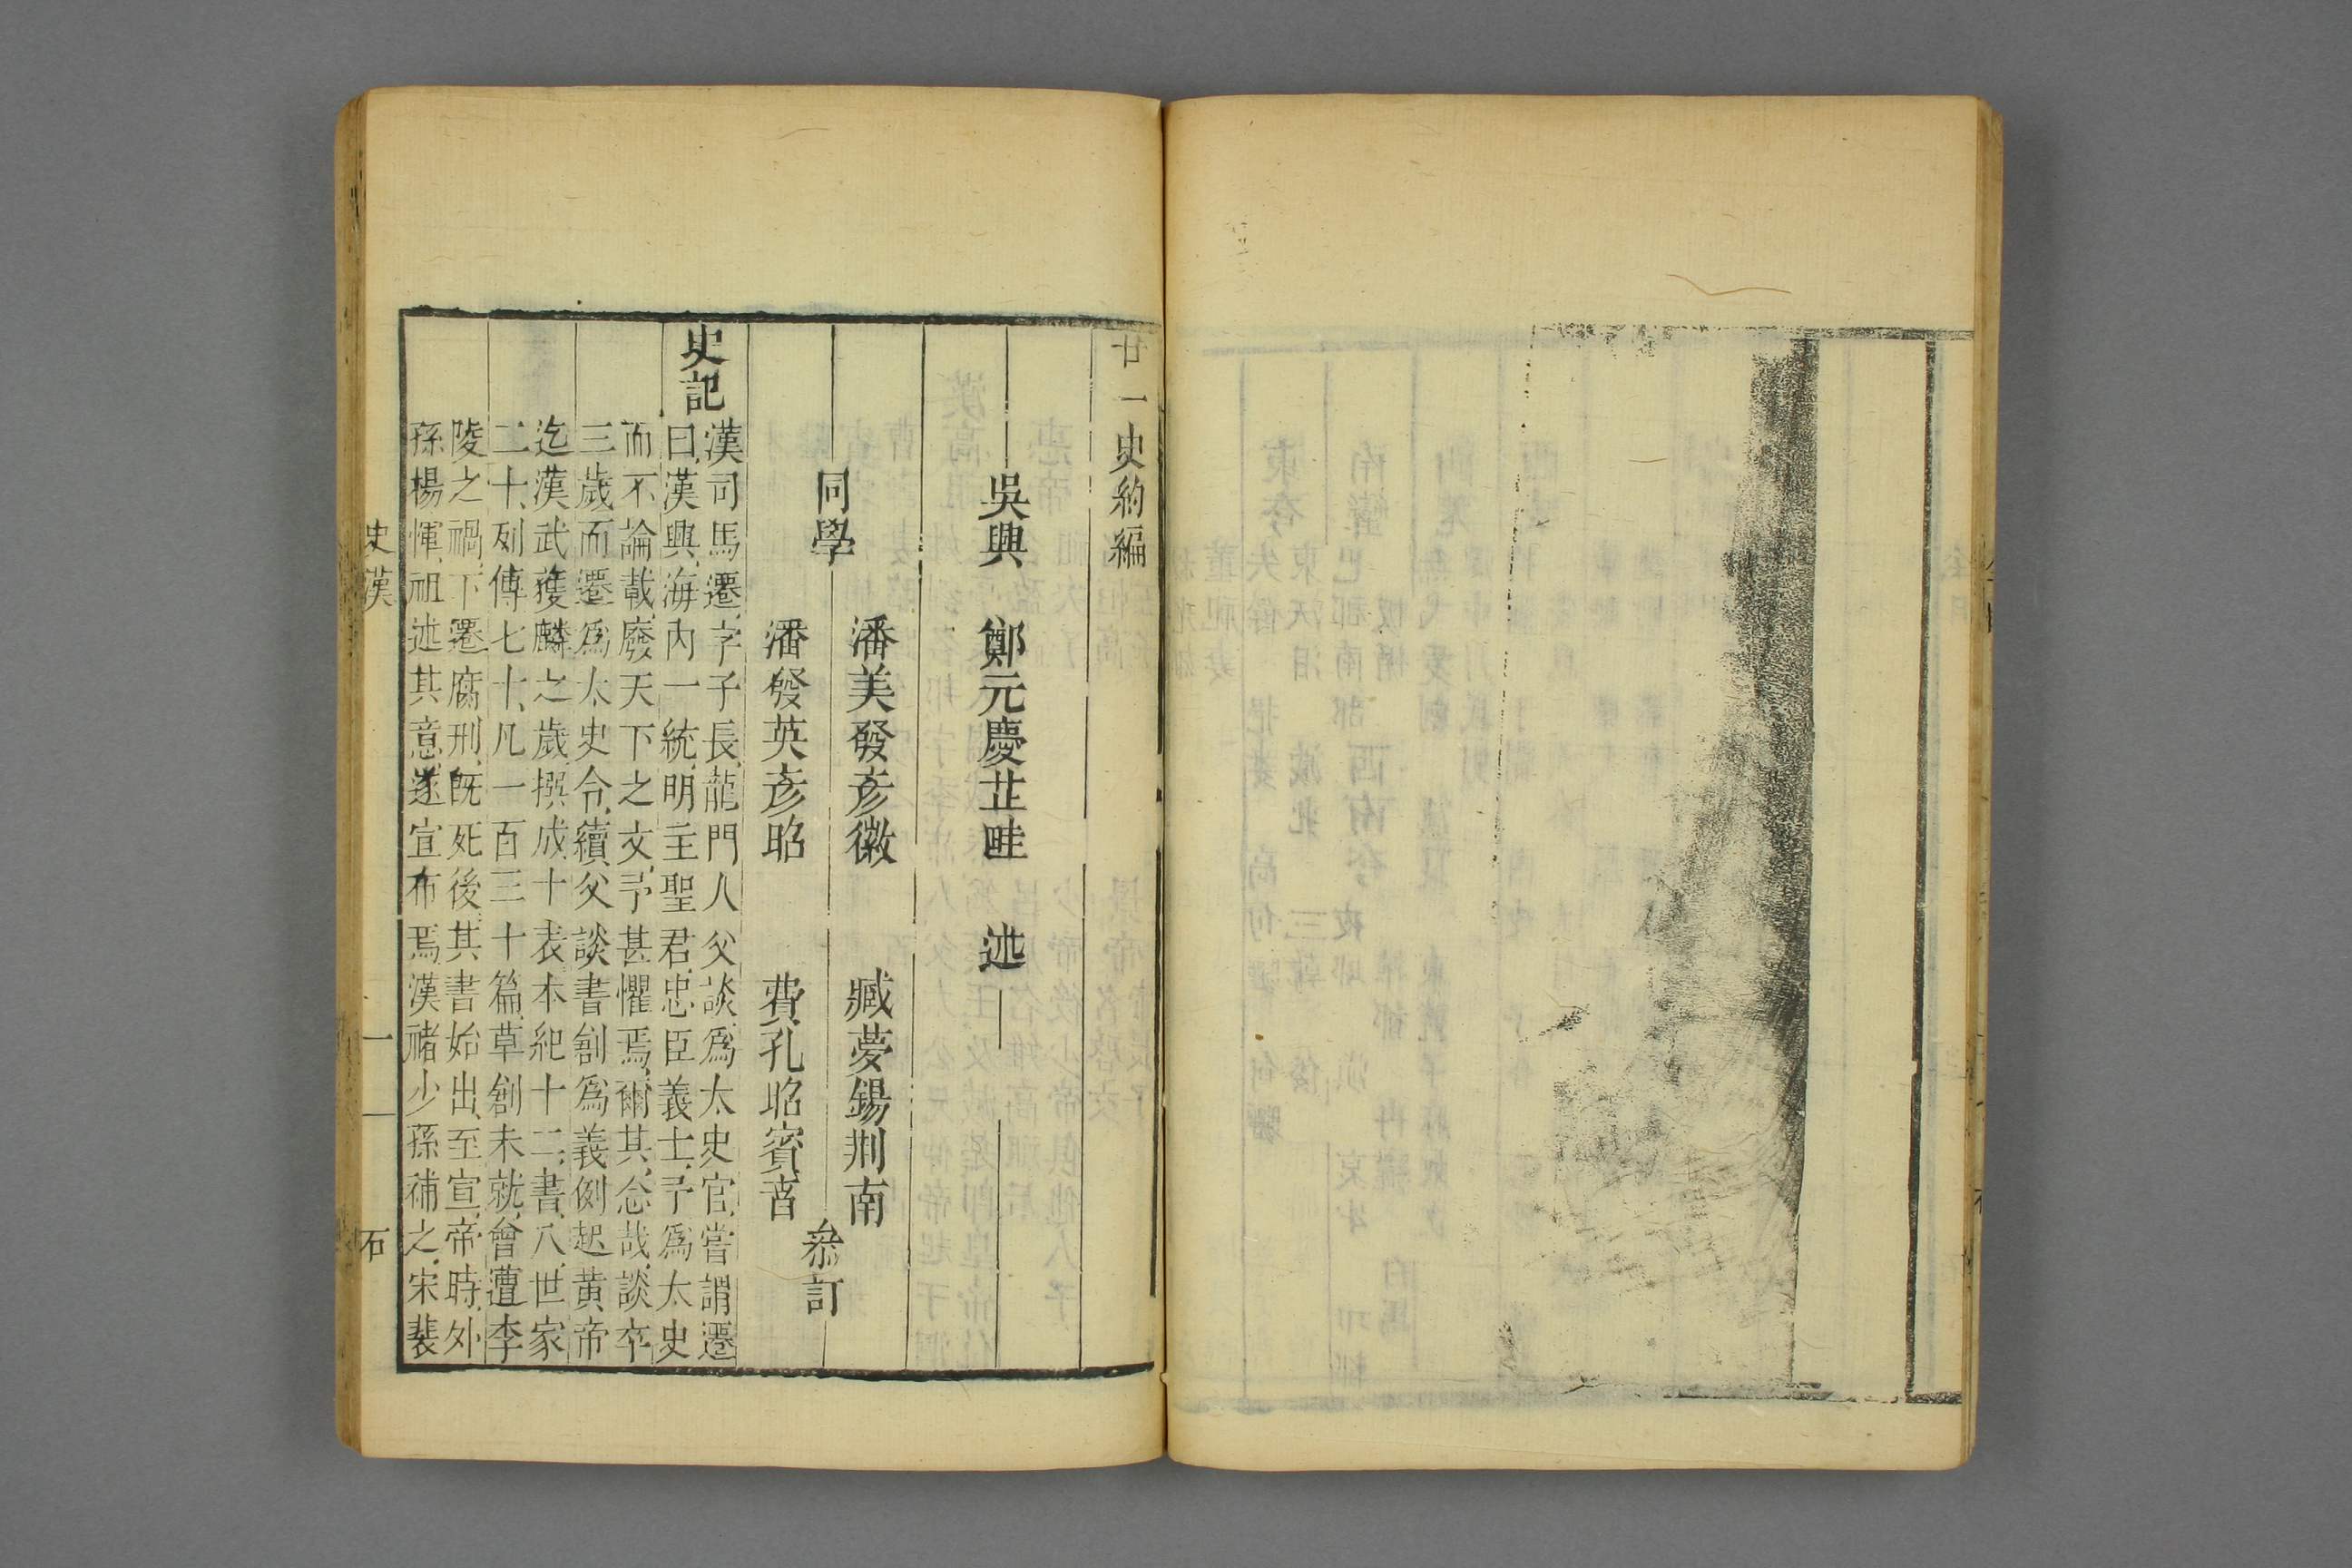 廿一史約編
吳興 鄭元慶芷畦 述
同學
潘美發彥徽 臧夢錫荆南
潘發英彥昭 費孔昭賓喜
叅訂
史記
漢司馬遷字子長龍門人父談爲太史官嘗謂遷
曰漢興海內一統明主聖君忠臣義士予爲太史
而不論載廢天下之文予甚懼焉爾其念哉談卒
三歲而遷爲太史令續父談書創爲義例起黃帝
迄漢武獲麟之歲撰成十表本紀十二書八世家
二十列傳七十凡一百三十篇草創未就會遭李
陵之禍下遷腐刑既死後其書始出至宣帝時外
孫楊惲祖述其意遂宣布焉漢褚少孫補之宋裴
史漢 一 石